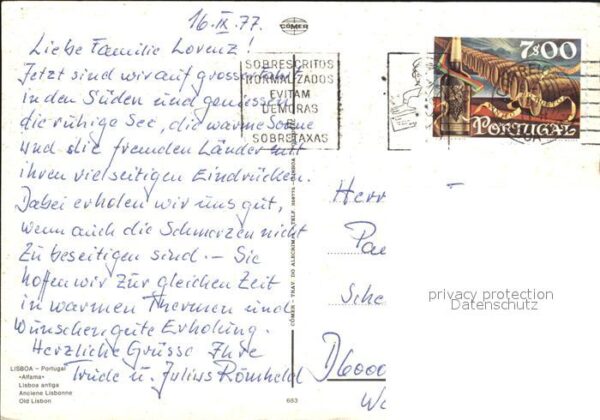 16.IX.77.
CÔMER
Liebe Familie Lorenz!
Jetzt sind wir auf grosser Fahrt
in den Süden und geniessen
die ruhige See, die warme Sonne
und die fremden Länder mit
ihren vielseitigen Eindrücken.
Dabei erholen wir uns gut,
wenn auch die Schmerzen nicht
zu beseitigen sind. — Sie
hoffen wir zur gleichen Zeit
in warmen Thermen und
wünschen gute Erholung.
Herzliche Grüsse Ihre
Trude u. Julius Römheld
LISBOA – Portugal
«Alfama»
Lisboa antiga
Anciene Lisbonne
Old Lisbon
SOBRESCRITOS
NORMALIZADOS
EVITAM
DEMORAS
SOBRETAXAS
7$00
PORTUGAL
CÔMER - TRAV. DO ALECRIM, TELF. LISBOA
683
Herr
Pa
Sche
D6000
privacy protection
Datenschutz